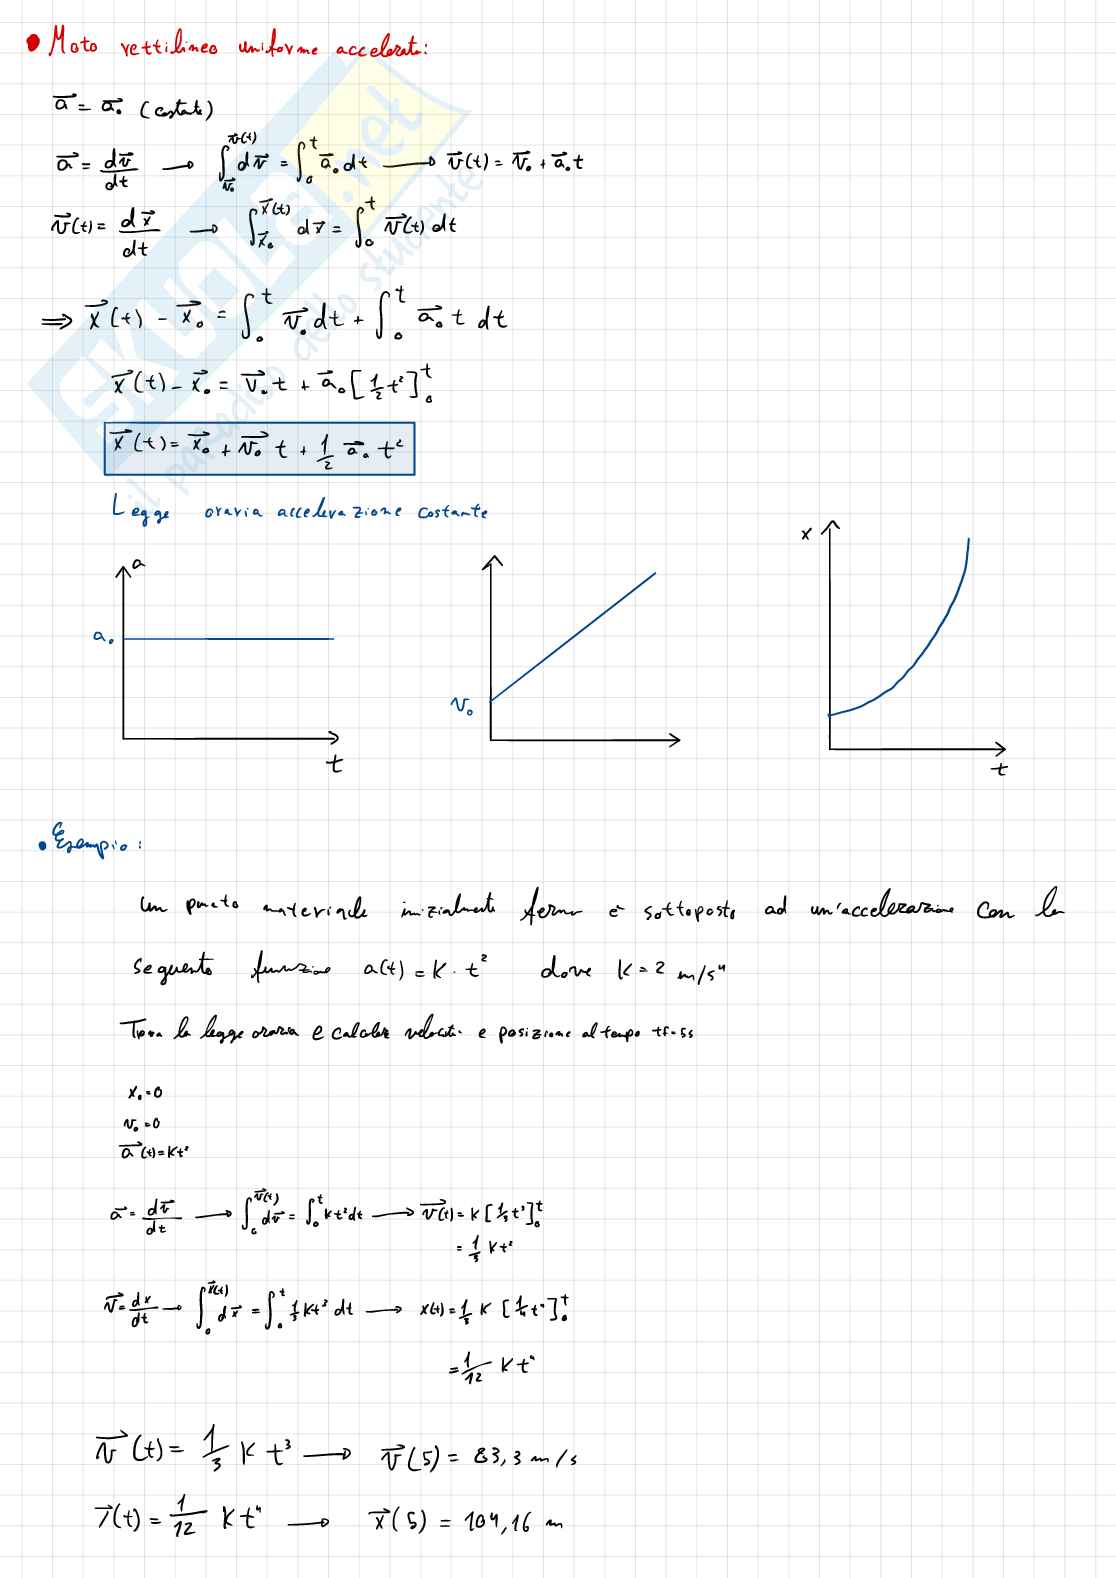 • Moto rettilineo uniforme accelerato:
a⃗ = a⃗₀ (costante)
a⃗ = dv⃗/dt → ∫_{v⃗₀}^{v⃗(t)} dv⃗ = ∫₀ᵗ a⃗₀ dt → v⃗(t) = v⃗₀ + a⃗₀ t
v⃗(t) = dx⃗/dt → ∫_{x⃗₀}^{x⃗(t)} dx⃗ = ∫₀ᵗ v⃗(t) dt
⇒ x⃗(t) - x⃗₀ = ∫₀ᵗ v⃗₀ dt + ∫₀ᵗ a⃗₀ t dt
x⃗(t) - x⃗₀ = v⃗₀ t + a⃗₀ [1/2 t²]₀ᵗ
x⃗(t) = x⃗₀ + v⃗₀ t + 1/2 a⃗₀ t²
Legge oraria accelerazione costante
a
a₀
t
v₀
x
t
• Esempio:
Un punto materiale inizialmente fermo è sottoposto ad un'accelerazione con la
seguente funzione a(t) = K · t² dove K = 2 m/s⁴
Trova la legge oraria e calcolare velocità e posizione al tempo tf = 5s
x₀ = 0
v₀ = 0
a⃗(t) = Kt²
a⃗ = dv⃗/dt → ∫₀^{v⃗(t)} dv⃗ = ∫₀ᵗ Kt² dt → v⃗(t) = K [1/3 t³]₀ᵗ
= 1/3 Kt²
v⃗ = dx/dt → ∫₀^{x⃗(t)} dx⃗ = ∫₀ᵗ 1/3 Kt³ dt → x(t) = 1/3 K [1/4 t⁴]₀ᵗ
= 1/12 K t⁴
v⃗(t) = 1/3 K t³ → v⃗(5) = 83,3 m/s
x⃗(t) = 1/12 K t⁴ → x⃗(5) = 104,16 m
SKUOLA.net
il paradiso dello studente